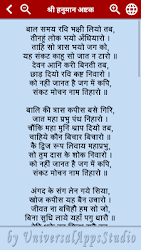 श्री हनुमान अष्टक
बाल समय रवि भक्षी लियो तब,
तीनहुं लोक भयो अँधियारो ।
ताहि सो त्रास भयो जग को,
यह संकट काहु सो जात न टारो ।
देवन आनि करी बिनती तब,
छाड़ दियो रवि कष्ट निवारो ।
को नहीं जानत है जग में कपि,
संकट मोचन नाम तिहारो ॥
बालि की त्रास कपीस बसे गिरि,
जात महा प्रभु पंथ निहारो ।
चौंकि महा मुनि श्राप दियो तब,
चाहिये कौन बिचार बिचारो ।
कै द्विज रूप लिवाय महाप्रभु,
सो तुम दास के शोक निवारो ।
को नहीं जानत है जग में कपि,
संकट मोचन नाम तिहारो ॥
अंगद के संग लेन गये सिया,
खोज कपीस यह बैन उचारो ।
जीवत ना बचिहौ हम सो जो,
बिना सुधि लाये यहाँ पगु धारो ॥
by UniversalAppsStudio